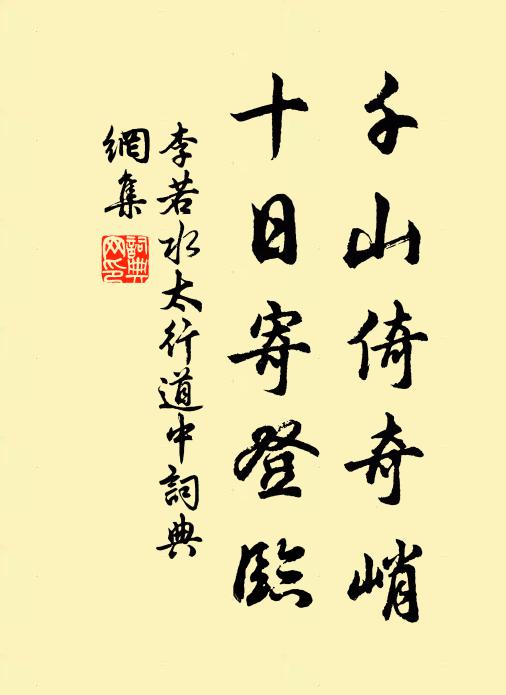 千山倚奇峭
十日寄登臨
李若水太行道中詞典
網集
詞典網印